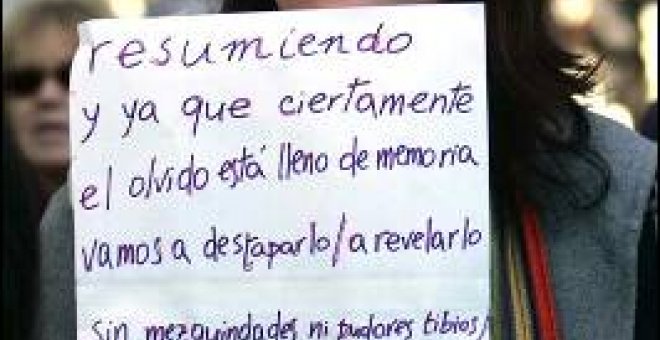 resumiendo
y ya que ciertamente
el olvido está lleno de memoria
vamos a destaparlo/a revelarlo
sin mezquindades ni pudores tibios/